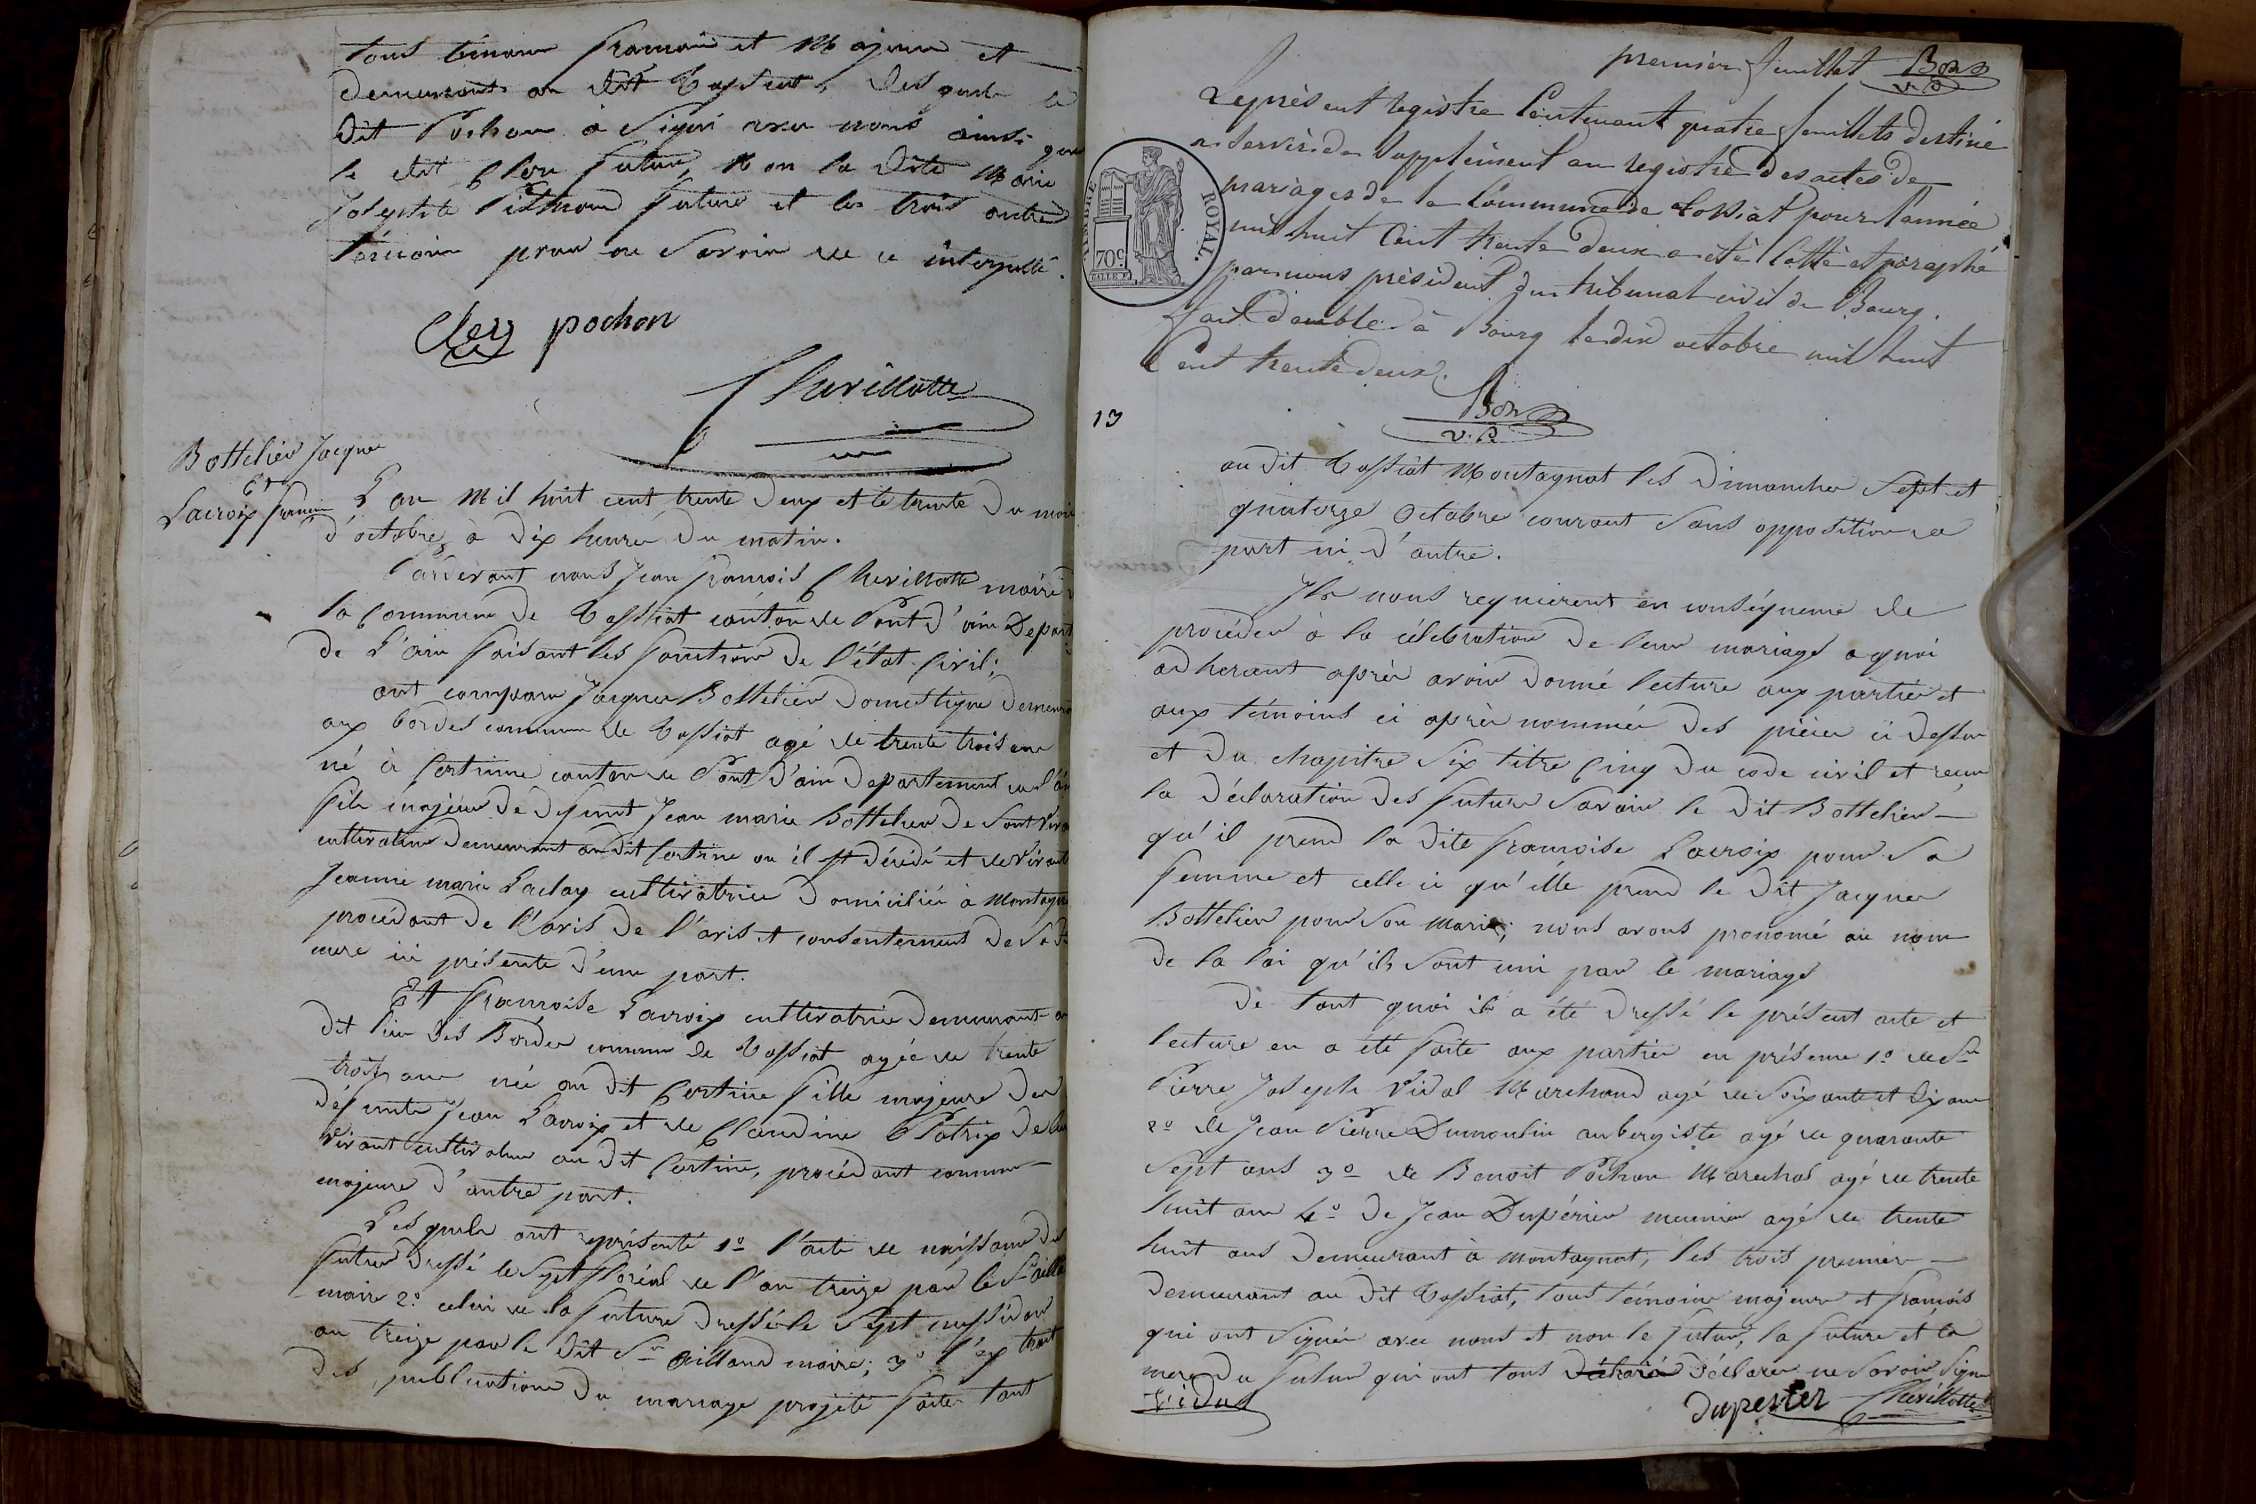 tous témoins francais et Majeurs et
demeurants au dit Tossiat, des quels le
dit Pochon a Signé avec nous ainsi que
le dit Clerc futur, Non la dite Marie
Josephte futurs et les trois autres
témoins pour ne savoir de ce interpellé.
Clerc pochon
Chevillotte
Bottelier Jacques
et
Lacroix francoise
L'an Mil huit cent trente Deux et le trente du mois
d'octobre, à dix heures du matin.
Pardevant nous Jean francois Chevillotte maire
la Commune de Tossiat canton de Pont d'ain Depart
de L'ain faisant les fonctions de l'état Civil;
ont comparu Jacques Bottelier domestique demeurant
aux bordes commune de Tossiat agé de trente trois ans
né à Certinne canton de Pont d'ain departement de l'ain
fils majeur de défunt Jean marie Bottelier de Sont vivant
cultivateur demeurant au dit Certine ou il est décédé et de vivante
Jeanne marie Laclay cultivatrice domiciliée à Montagna
procédant de l'avis de l'avis et consentement de Sa d.
mere ici présente d'une part.
Et francoise Lacroix cultivatrice demeurant au
dit lieu des Bordes commune de Tossiat agée de trente
trois ans née au dit Certine fille majeure des
défunts Jean Lacroix et de Claudine Platrix de leur
Vivant cultivateurs au dit Certine, procédant comme
majeure d'autre part.
Les quels ont représenté 1º l'acte de naissance du
futur dressé le sept floréal de l'an treize par le Sr aillaud
maire 2º celui de la future dressé le Sept messidor
an treize par le dit Sr aillaud maire; 3º l'extrait
des publications du mariage projété faites tant
premier feuillet Bon
v. P.
Le présent registre Contenant quatre feuillets destiné
a servir de Supplément au registre des actes de
mariages de la Commune de Tossiat pour l'année
mil huit Cent trente deux a été Cotté et paraphé
par nous président du tribunal civil de Bourg.
fait double à Bourg le dix octobre mil huit
Cent trente deux.
Bon
v. P.
TIMBRE ROYAL.
70c
13
au dit Tossiat Montagnat les dimanches Sept et
quatorze Octobre courant Sans opposition de
part ni d'autre.
Ils nous requierent en conséquence de
procéder à la célébration de leur mariage a quoi
adherant après avoir donné lecture aux parties et
aux témoins ci après nommés des pièces ci dessus
et du chapitre Six titre Cinq du code civil et recu
la déclaration des futurs Savoir le dit Bottelier
qu'il prend la dite francoise Lacroix pour Sa
femme et celle ci qu'elle prend le dit Jacques
Bottelier pour Son Mari; nous avons prononcé au nom
de la loi qu'ils Sont uni par le mariage
De tout quoi il a été dressé le présent acte et
lecture en a été faite aux parties en présence 1º de Sr
Pierre Joseph Vidal Marchand agé de Soixante et dix ans
2º de Jean Pierre Dumoulin aubergiste agé de quarante
Sept ans 3º de Benoit Pochon Marechal agé de trente
huit ans 4º de Jean Dupérier meunier agé de trente
huit ans demeurant à Montagnat, les trois premiers
demeurant au dit Tossiat, tous témoins majeurs et francais
qui ont Signés avec nous et non le futur, la future et la
mere du futur qui ont tous déclaré déclarer ne Savoir Signer
Vidal
Duperier Chevillotte